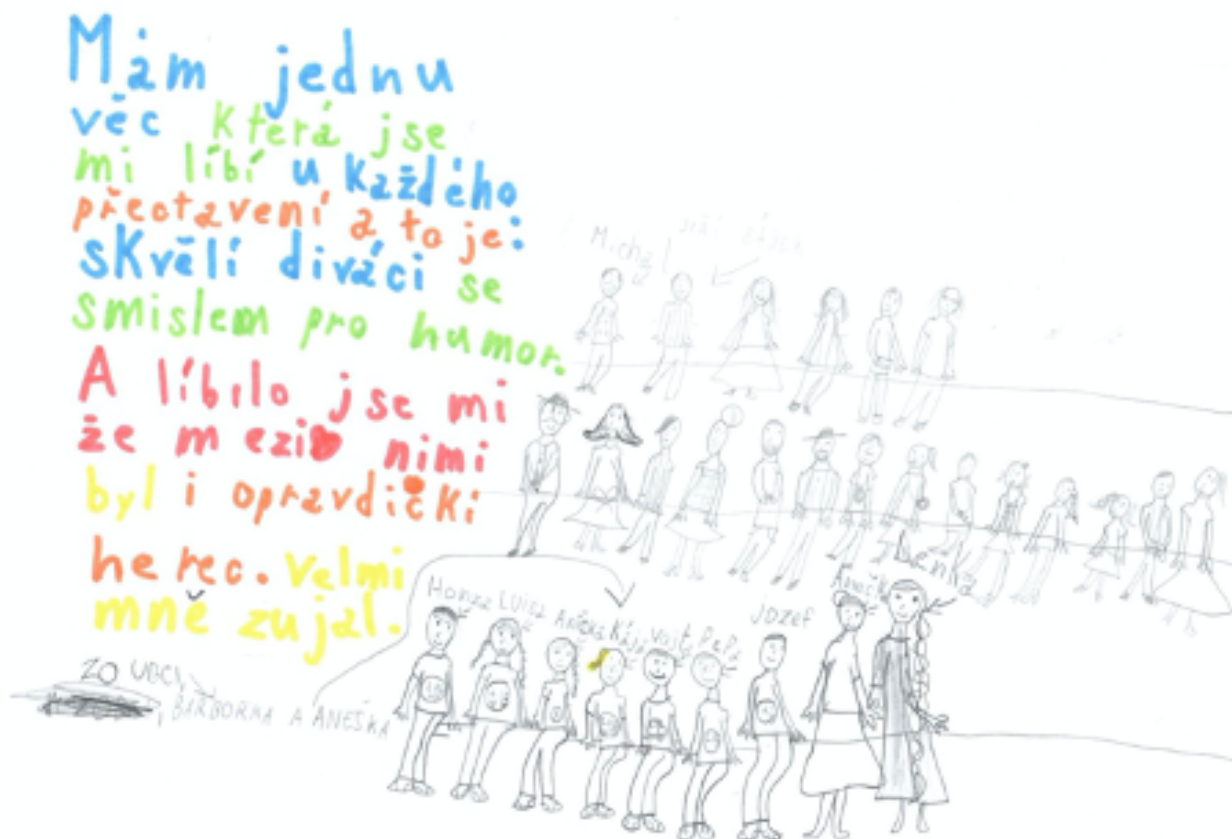 Mám jednu
věc která jse
mi líbí u každého
přectavení a to je:
skvělí diváci se
smislem pro humor.
A líbilo jse mi
že mezi nimi
byl i opravdički
herec. Velmi
mně zujal.
ZO UBCI,
BARBORKA A ANEŠKA
Michal
Lenka
Honza Luisa Vojt Pepa
Jozef